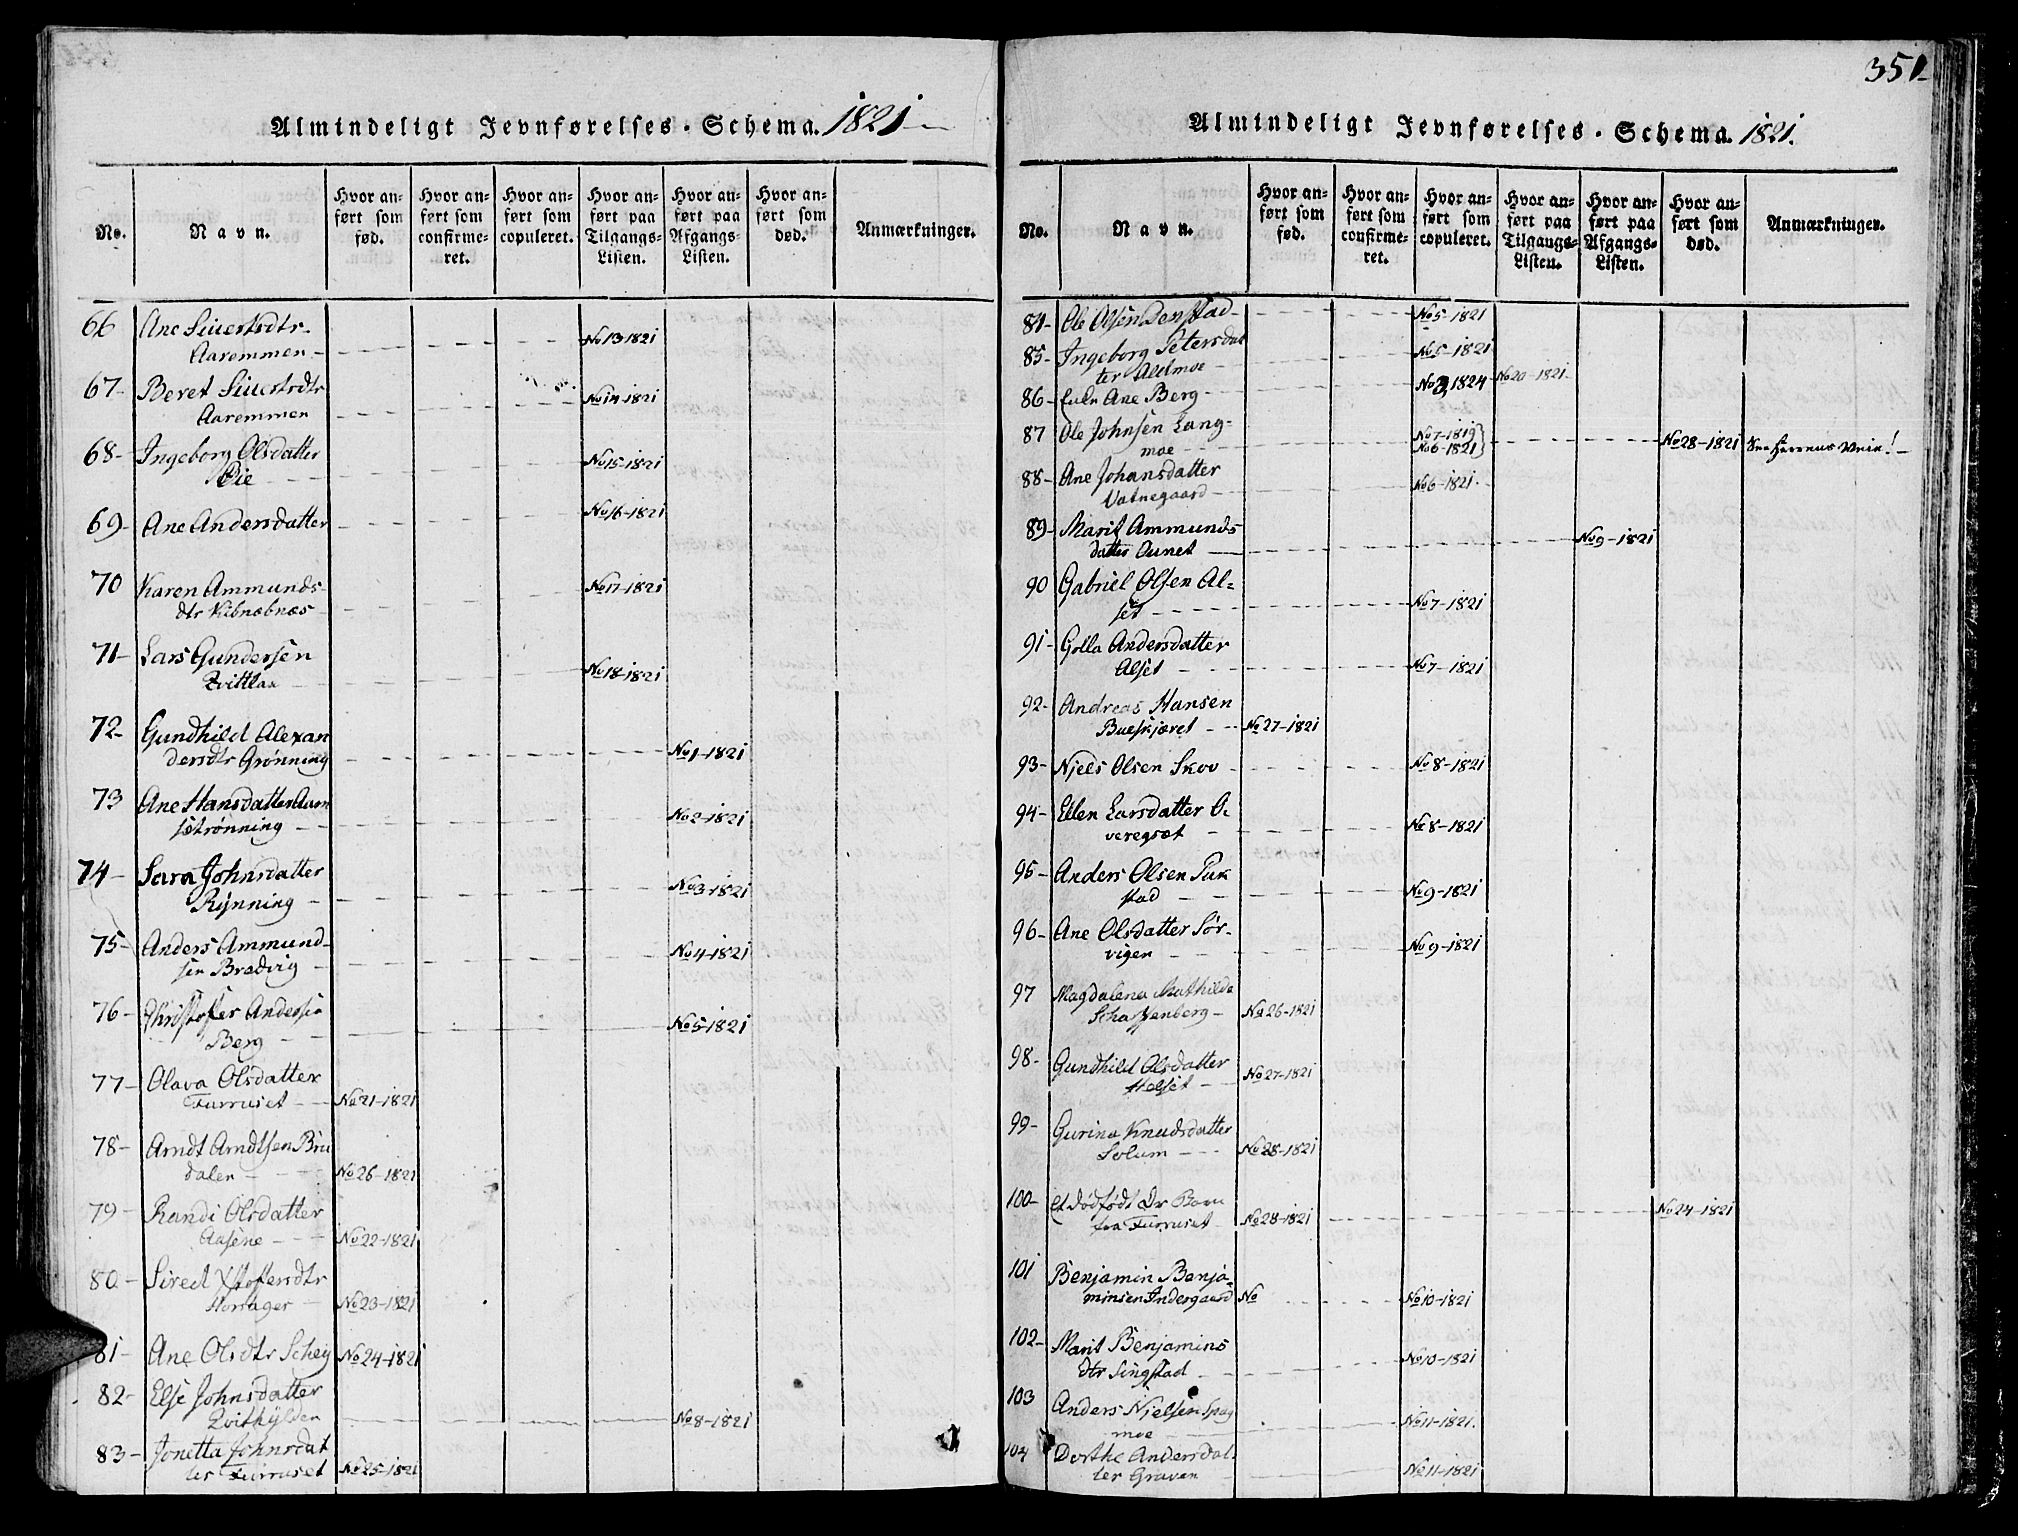 Almindeligt Jevnførelses-Schema. 1821
No.
Navn.
Hvor anført som fød.
Hvor anført som confirmeret.
Hvor anført som copuleret.
Hvor anført paa Tilgangs-Listen.
Hvor anført paa Afgangs-Listen.
Hvor anført som død.
Anmærkninger.
66 Ane Siuertsdtr.
Aaremmen - No 13-1821
67- Beret Siuertsdtr
Aaremmen No 14-1821
68- Ingeborg Olsdatter
Øie No 15-1821
69- Ane Andersdatter No 16-1821
70 Karen Ammunds-
dtr No 17-1821
71- Lars Gundersen
No 18-1821
72- Gundhild Alexan
dersdtr Grønning No 1-1821
73 Ane Hansdatter
No 2-1821
74- Sara Johnsdatter
Rønning - No 3-1821
75- Anders Ammund-
sen Bradvig - No 4-1821
76- Christofer Andersen
Berg - No 5-1821
77- Olava Olsdatter
Furruset - No 21-1821
78- Arndt Arndtsen Bru
dalen - No 26-1821
79- Randi Olsdatter
Aasene - No 22-1821
80- Sired Xstofersdtr
No 23-1821
81- Ane Olsdtr Schey No 24-1821
82- Else Johnsdatter
No 8-1821
83- Jonetta Johnsdat
ter Furruset No 25-1821
351-
Almindeligt Jevnførelses-Schema. 1821.
No.
Navn.
Hvor anført som fød.
Hvor anført som confirmeret.
Hvor anført som copuleret.
Hvor anført paa Tilgangs-Listen.
Hvor anført paa Afgangs-Listen.
Hvor anført som død.
Anmærkninger.
84- Ole Olsen Denstad - No 5-1821
85- Ingeborg Petersdat
ter No 5-1821
86- Ane Berg - No 3, 1824 No 20-1821
87 Ole Johnsen Lang-
moe No 7-1819 No 6-1821 No 28-1821
88- Ane Johansdatter
Vatnegaard - No 6-1821.
89- Marit Ammunds
datter Aunet - No 9-1821
90 Gabriel Olsen Al-
set - No 7-1821
91- Golla Andersdatter
Alset - No 7-1821
92- Andreas Hansen
Bueskjæret - No 27-1821
93- Njels Olsen Skov - No 8-1821
94- Ellen Larsdatter O-
veregset - No 8-1821
95- Anders Olsen Puk
stad - No 9-1821
96- Ane Olsdatter Sør-
vigen - No 9-1821
97 Magdalena Mathilde
No 26-1821
98- Gundhild Olsdatter
Helset - No 27-1821
99- Gurina Knudsdatter
Solum - No 28-1821
100- et dødfødt Dr Barn
fra Furruset - No 28-1821 No 24-1821
101 Benjamin Benja-
minsen Indergaard No No 10-1821
102- Marit Benjamins
dtr Singstad - No 10-1821
103 Anders Njelsen
moe - No 11-1821.
104 Dorthe Andersdat-
ter Graven - No 11-1821